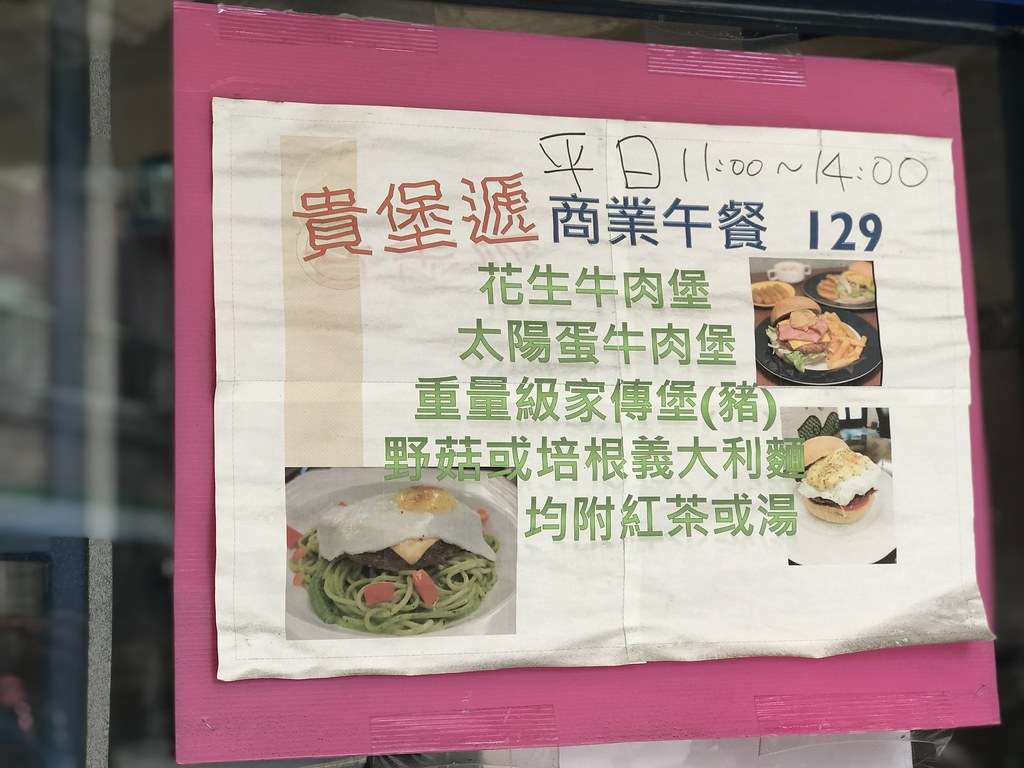 平日 11:00~14:00
貴堡遞 商業午餐 129
花生牛肉堡
太陽蛋牛肉堡
重量級家傳堡(豬)
野菇或培根義大利麵
均附紅茶或湯